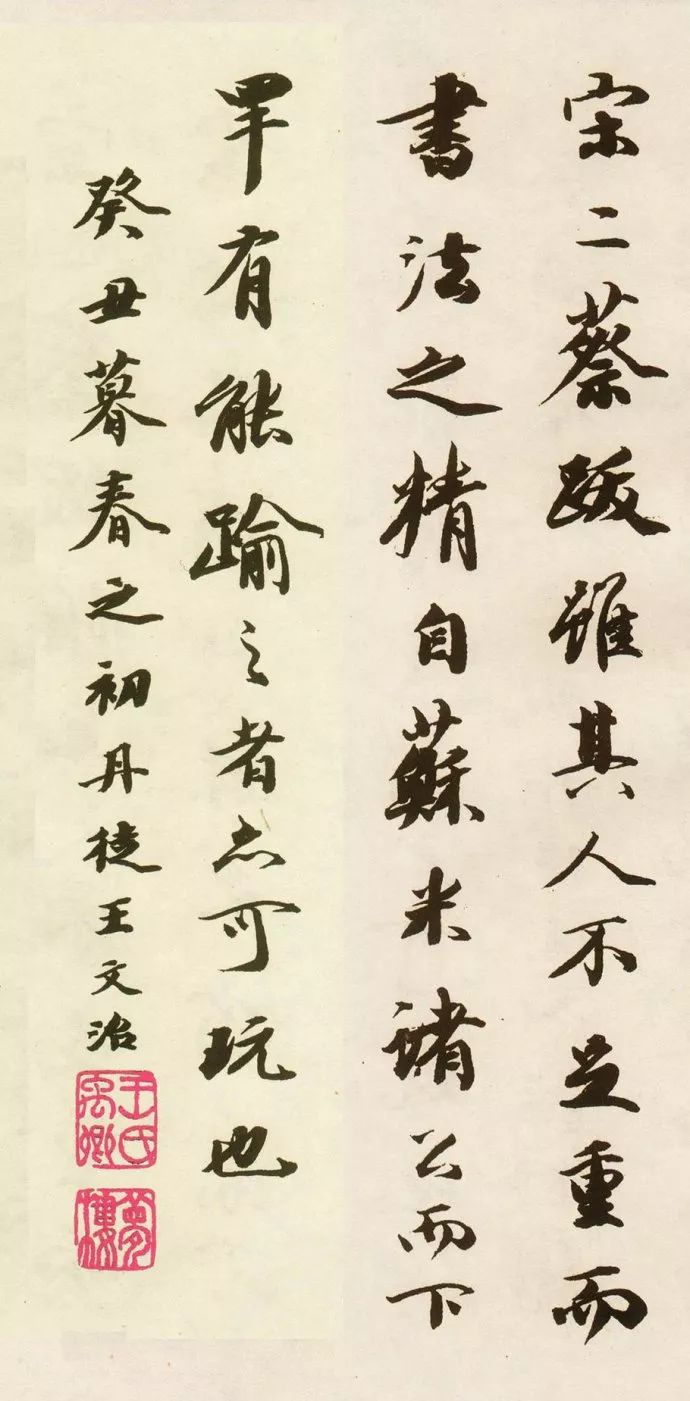 宋二蔡跋雖其人不足重而
書法之精自蘇米諸公而下
罕有能踰之者亦可玩也
癸丑暮春之初丹徒王文治
王氏禹卿
夢樓